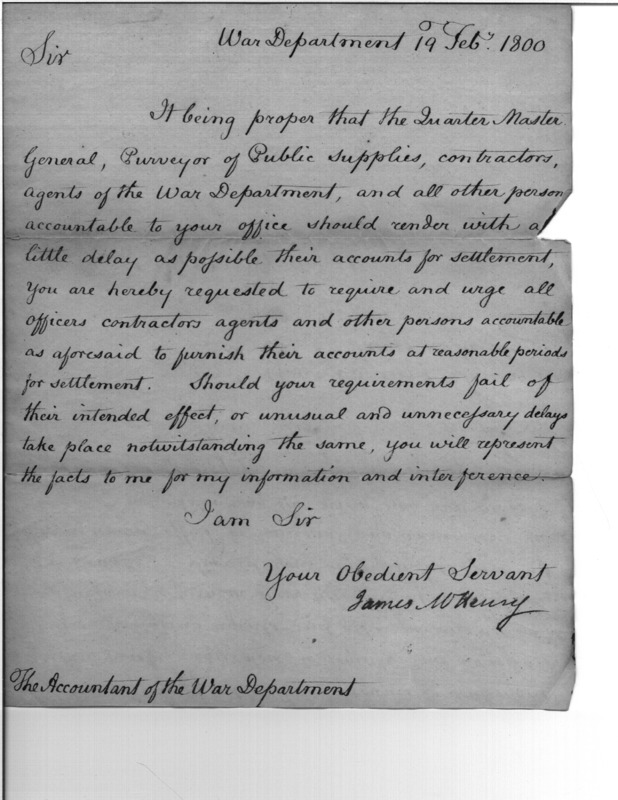 War Department 19 Feby. 1800
Sir
It being proper that the Quarter Master
General, Purveyor of Public supplies, contractors,
agents of the War Department, and all other person
accountable to your office should render with a
little delay as possible their accounts for settlement,
you are hereby requested to require and urge all
officers contractors agents and other persons accountable
as aforesaid to furnish their accounts at reasonable periods
for settlement. Should your requirements fail of
their intended effect, or unusual and unnecessary delays
take place notwitstanding the same, you will represent
the facts to me for my information and interference.
I am Sir
Your Obedient Servant
James McHenry
The Accountant of the War Department